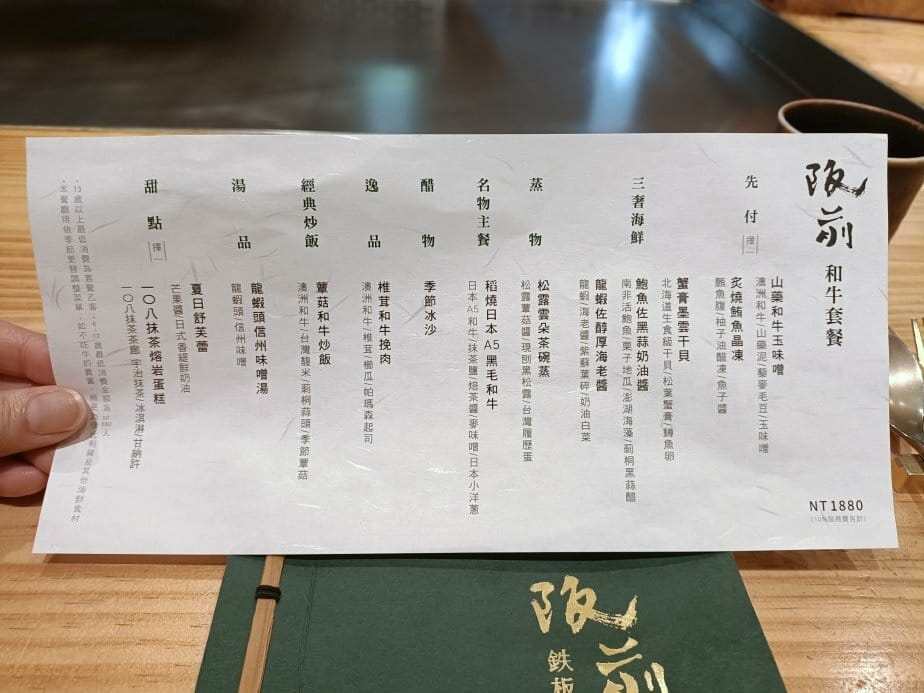 阪前
和牛套餐
NT1880
(10%服務費另計)
先付
擇一
山藥和牛玉味噌
澳洲和牛/山藥泥/藜麥毛豆/玉味噌
炙燒鮪魚晶凍
鮪魚腹/柚子油醋凍/魚子醬
三奢海鮮
蟹膏墨雲干貝
北海道生食級干貝/松葉蟹膏/鱒魚卵
鮑魚佐黑蒜奶油醬
南非活鮑魚/栗子地瓜/澎湖海藻/莿桐黑蒜醋
龍蝦佐醇厚海老醬
龍蝦/海老醬/紫蘇葉碎/奶油白菜
蒸物
松露雲朵茶碗蒸
松露蕈菇醬/現刨黑松露/台灣履歷蛋
名物主餐
稻燒日本A5黑毛和牛
日本A5和牛/抹茶鹽/焙茶醬/麥味噌/日本小洋蔥
醋物
季節冰沙
逸品
椎茸和牛挽肉
澳洲和牛/椎茸/櫛瓜/帕瑪森起司
經典炒飯
蕈菇和牛炒飯
澳洲和牛/台灣麴米/莿桐蒜頭/季節蕈菇
湯品
龍蝦頭信州味噌湯
龍蝦頭/信州味噌
甜點
擇一
夏日舒芙蕾
芒果醬/日式香緹鮮奶油
一〇八抹茶熔岩蛋糕
一〇八抹茶廊 宇治抹茶/冰淇淋/甘納許
•13歲以上最低消費為套餐乙客；6-12歲最低消費金額為NT
•本餐廳得依季節更替調整菜單；如不吃牛的貴賓，
及其他海鮮食材
阪前
鉄板